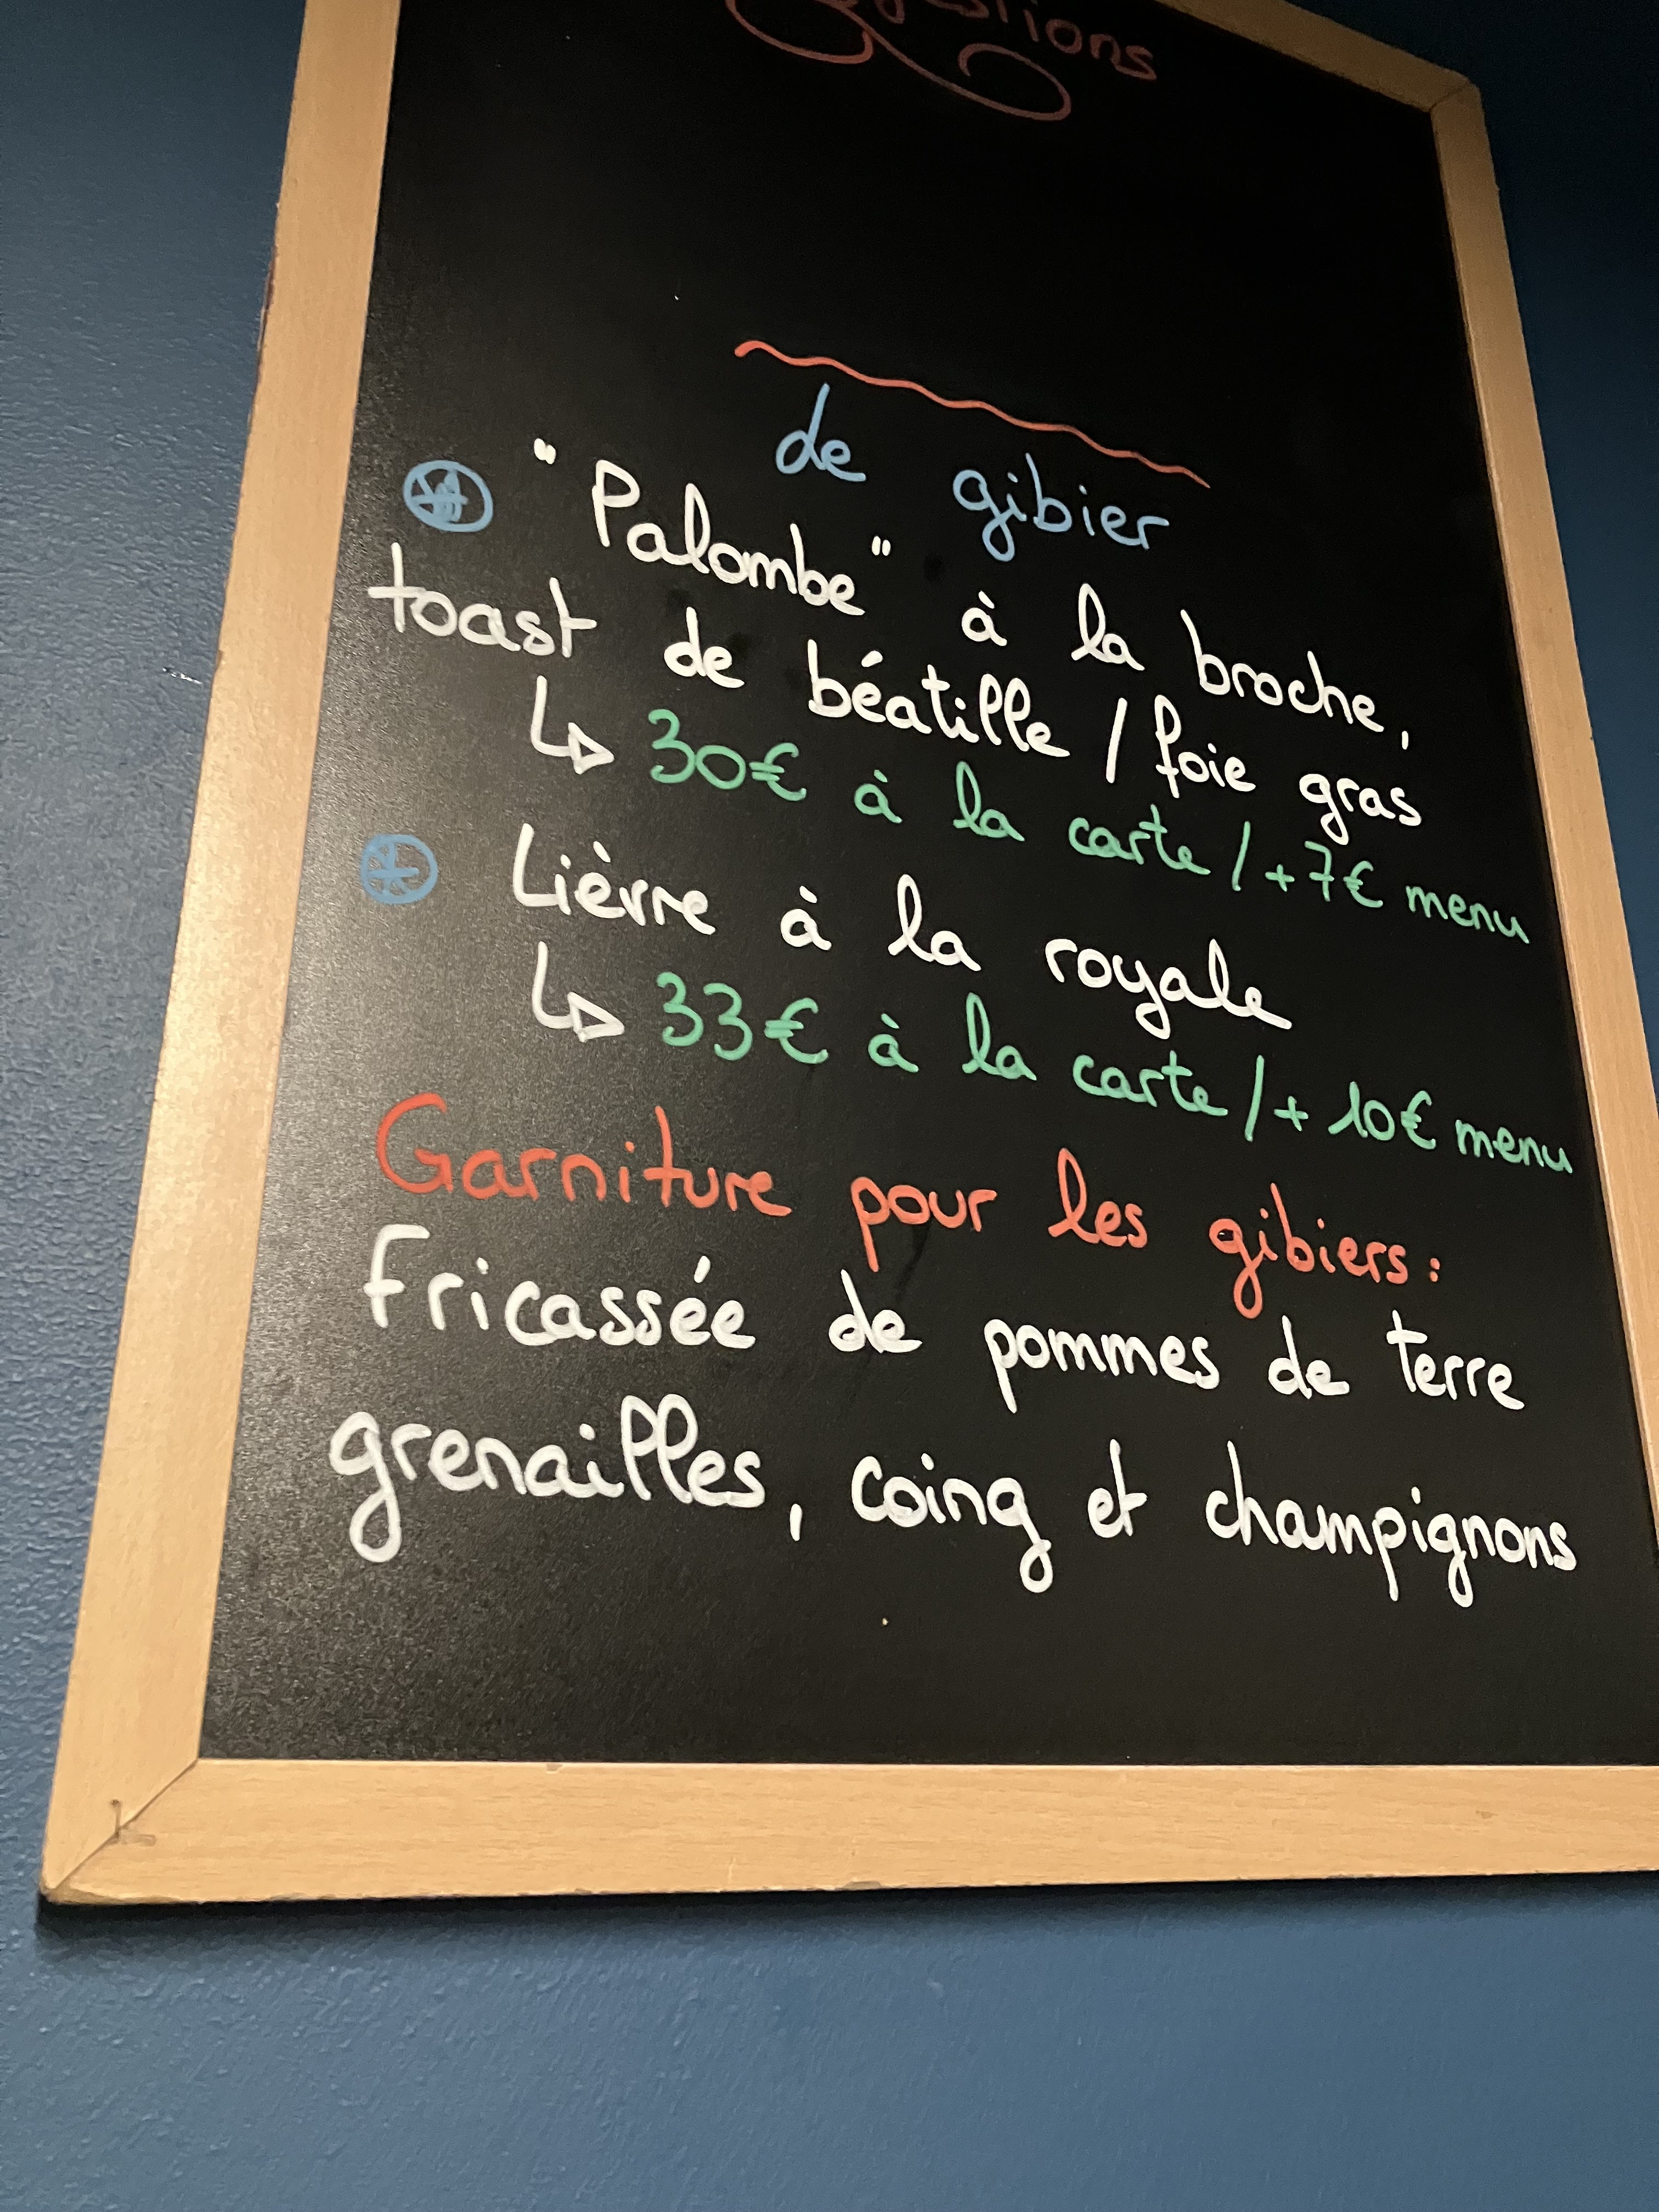 de gibier
"Palombe" à la broche,
toast de béatille / foie gras
↳ 30€ à la carte / +7€ menu
Lièvre à la royale
↳ 33€ à la carte / + 10€ menu
Garniture pour les gibiers :
Fricassée de pommes de terre
grenailles, coing et champignons